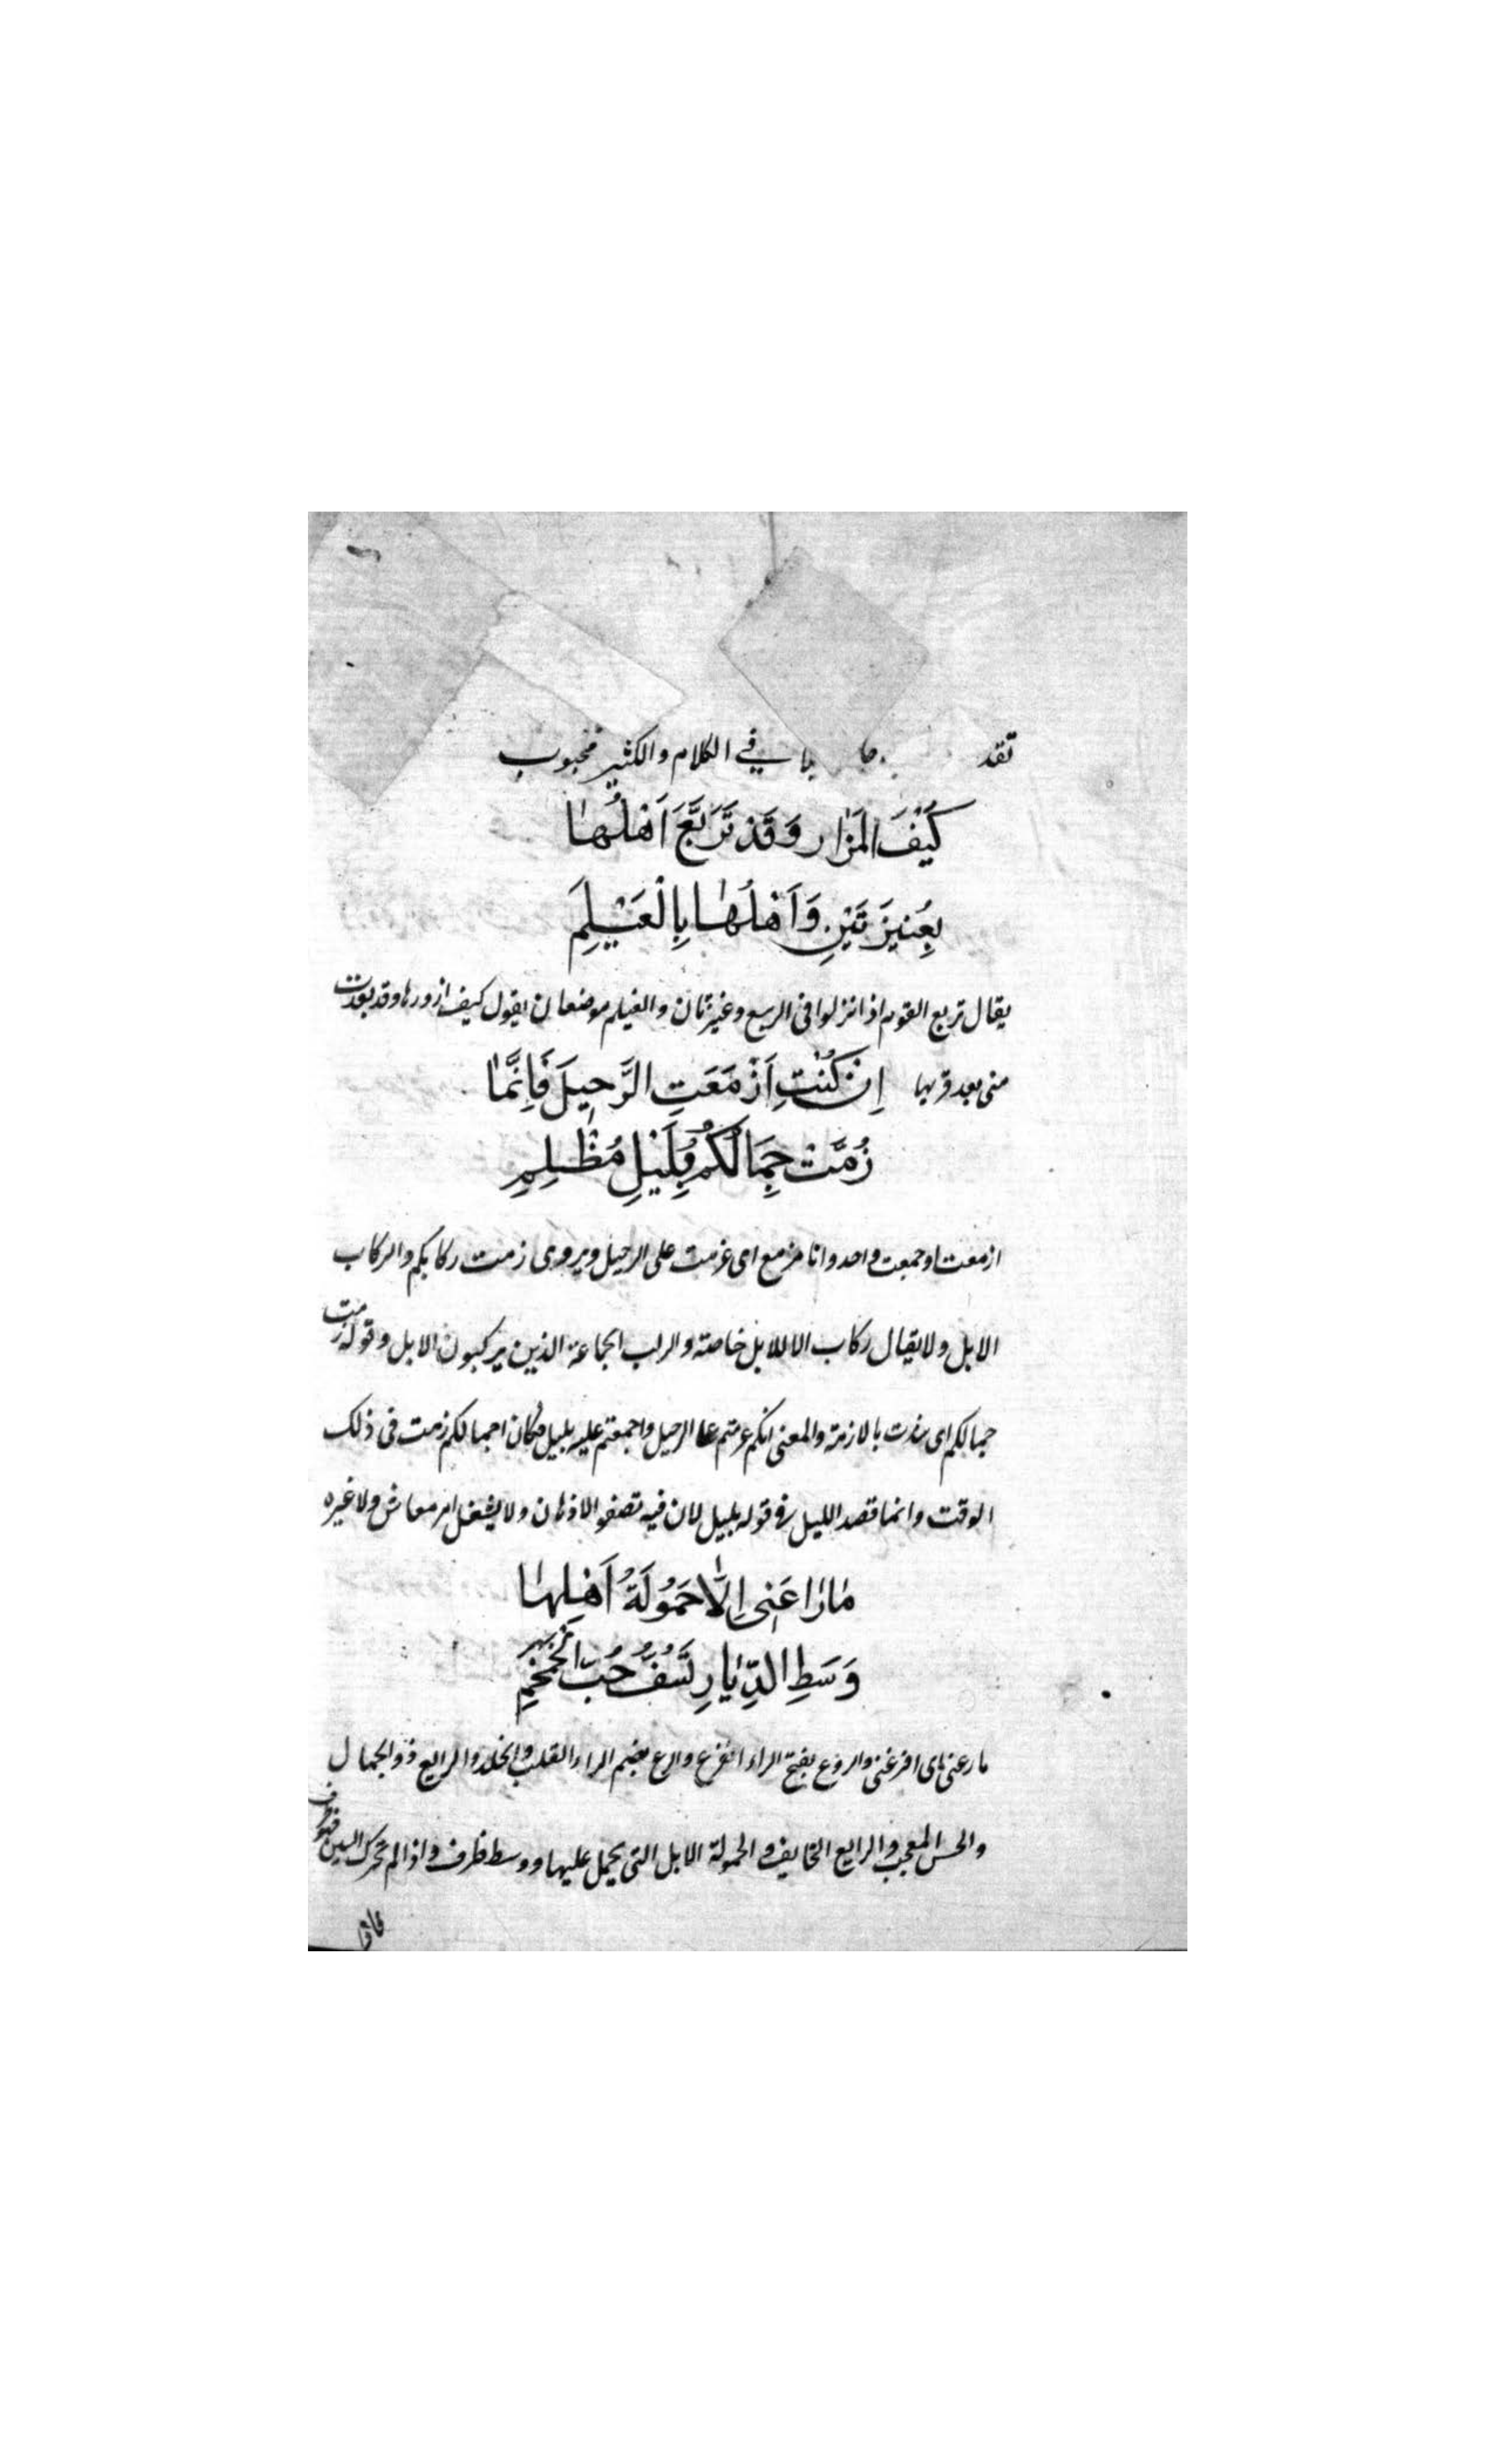 تقد في الكلام والكثير محبوب
كَيْفَ المَزَار وَقَدْ تَرَبَّعَ اَهْلُهَا
بِعُنَيْزَتَيْنِ وَاَهْلُهَا بِالْغَيْلَمِ
يقال تربع القوم اذا نزلوا في الربيع وعنيزتان والغيلم موضعان يقول كيف ازورها وقد بعدت
منى بعد قربها اِنْ كُنْتِ اَزْمَعَتِ الرَّحِيلَ فَاِنَّمَا
زُمَّتْ جِمَالُكُمُ بِلَيْلٍ مُظْلِمِ
ازمعت اوجمعت واحد وانا مزمع اى عزمت على الرحيل ويروى زمت ركابكم والركاب
الابل ولا يقال ركاب الا للابل خاصته والراب الجماعة الذين يركبون الابل وقوله زمت
جمالكم اى شدت بالازمة والمعنى انكم عزمتم على الرحيل واجمعتم عليه بليل فكان اجمالكم زمت في ذلك
الوقت وانما قصد الليل في قوله بليل لان فيه تصفو الاذهان ولا يشغل امر معاش ولا غيره
مَارَاعَنِي اِلَّا حَمُولَةُ اَهْلِهَا
وَسَطِ الدِّيَارِ تَسُفُّ حُبَّ الخِمْخِمِ
مارعنى اى افزعنى والروع بفتح الراء الفزع والرع بضم الراء القلب والخلد والرايع ذوالجمال
والحسن المعجب والرايع الخايف والحمولة الابل التى يحمل عليها ووسط ظرف واذا لم تحرك السين فهو ظرف